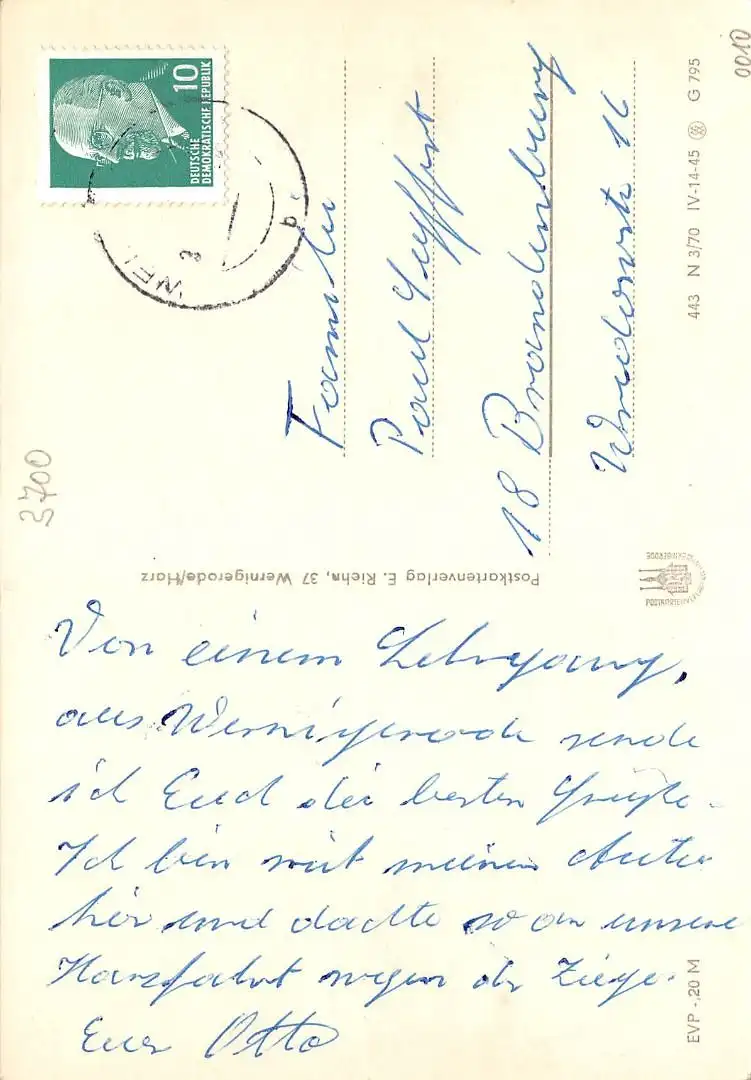 Von einem Lehrgang,
aus Wernigerode sende
ich Euch die besten Grüße.
Ich bin mit meinem Auto
hier und dachte so an unsere
Harzfahrt wegen der Ziege.
Euer Otto
Familie
Paul Seyffert
18 Brandenburg
16
10
DEUTSCHE
DEMOKRATISCHE REPUBLIK
WE
3700
0010
Postkartenverlag E. Riehn, 37 Wernigerode/Harz
443 N 3/70 IV-14-45 G 795
EVP -,20 M